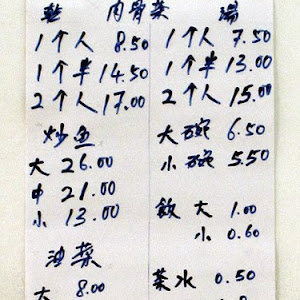 肉骨茶 湯
1个人 8.50
1个半 14.50
2个人 17.00
炒鱼
大 26.00
中 21.00
小 13.00
油菜
大 8.00
1个人 7.50
1个半 13.00
2个人 15.00
大碗 6.50
小碗 5.50
飲 大 1.00
小 0.60
茶水 0.50